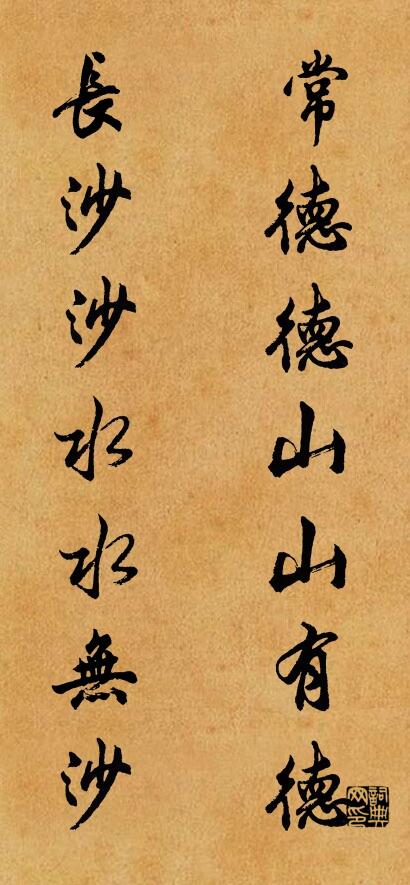 常德德山山有德
長沙沙水水無沙
詞典